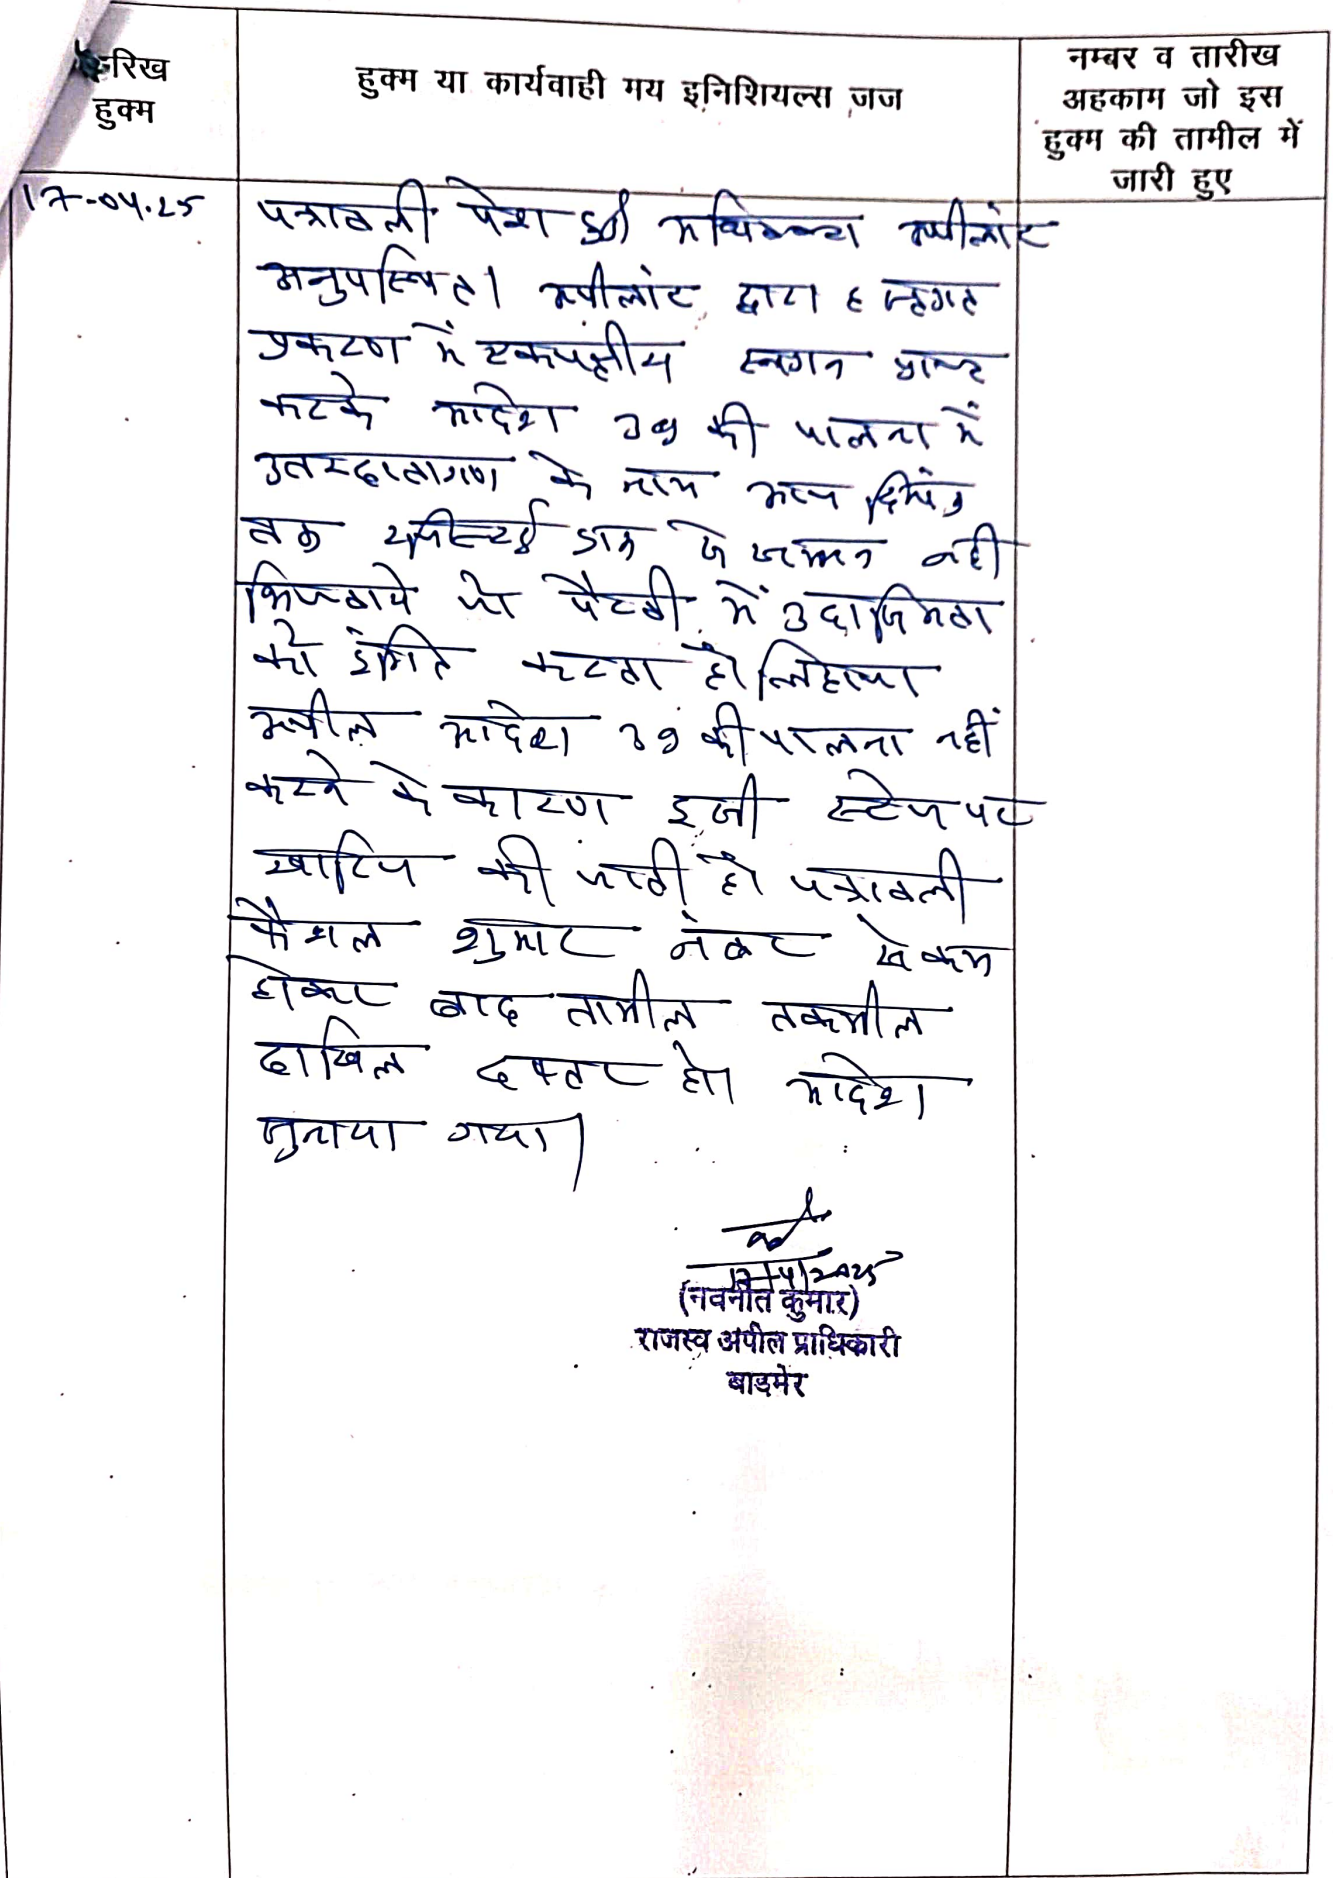 तारिख
हुक्म
हुक्म या कार्यवाही मय इनिशियल्स जज
नम्बर व तारीख
अहकाम जो इस
हुक्म की तामील में
जारी हुए
17-04.25
पत्रावली पेश हुई। अधिवक्ता अपीलांट
अनुपस्थित। अपीलांट द्वारा हस्तगत
प्रकरण में एकपक्षीय स्थगन प्राप्त
करके आदेश 39 की पालना में
उत्तरदातागण के नाम आज दिनांक
तक रजिस्टर्ड डाक से सम्मन नहीं
भिजवाये जो पैरवी में उदासिनता
को इंगित करता है। लिहाजा
अपील आदेश 39 की पालना नहीं
करने के कारण इसी स्टेज पर
खारिज की जाती है। पत्रावली
फैसल शुमार नंबर से कम
होकर बाद तामील तकमील
दाखिल दफ्तर हो। आदेश
सुनाया गया।
17/4/2025
(नवनीत कुमार)
राजस्व अपील प्राधिकारी
बाडमेर